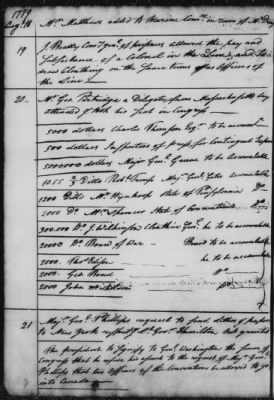 1779
Augt. 18 Mr. Matthews added to Marine Comee. in room of Mr.
19 J. Beatty Comy Genl. of prisoners allowed the pay and
Subsistance of a Colonel in the Line and to
draw Cloathing on the same terms as officers of
the Line
20 Mr. Geo. Partridge a Delegate from Massachusetts Bay
attended & took his seat in Congress
5000 dollars Charles Thomson Esqr. to be account
500 dollars Inspectors of press for Contingent Expens
5000000 dollars Major Genl. Greene to be accountable
1055 2/3 Ditto Robt. Troup
1200 Ditto Mr. Wynkoop State of Pensylvania Do.
2000 Do. Mr. Spencer State of Connecticut Do.
300.000 Do. J. Wilkinson Cloathier Genl. he to be accountable
20000 Do. Board of War - Board to be accountable
2000 he to be accountable
2000
2000 John
21 Majr. Genl. Phillips request to send letters of
to New York Hamilton Not granted
The president to Signify to Genl. Washington the sense of
Congress that he refuse his assent to the request of Majr. Genl.
Philips that two officers of the Convention be allowed to go
into Canada